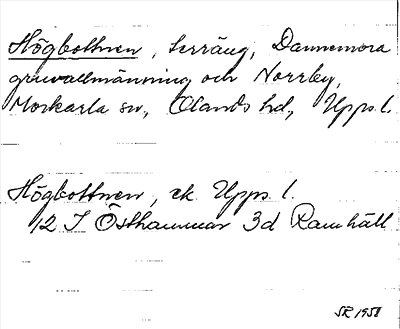 Högbottnen, terräng, Dannemora
gruvallmänning och Norrby,
Morkarla sn, Olands hd, Upps. l.
Högbottnen, ek. Upps. l.
12 I Östhammar 3d Ramhäll
SR 1958